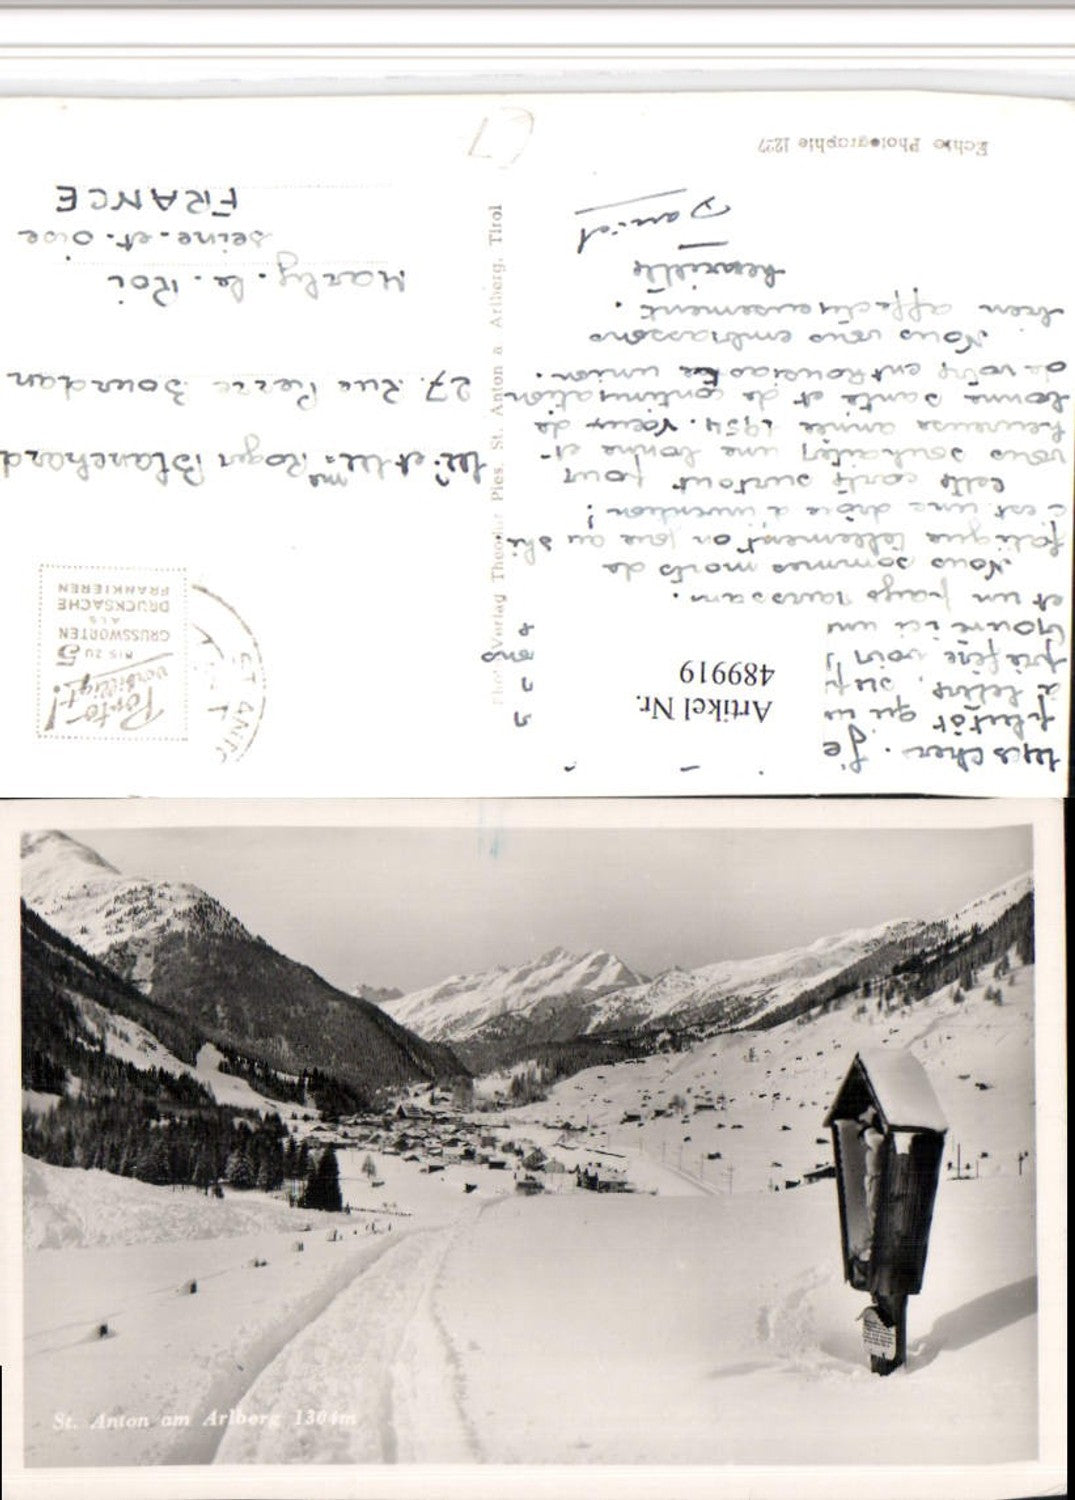 mes chers. Je
plutôt que un
à lettre,
préfère voir
et un pays ravissant.
Nous sommes morts de
fatigue tellement on joue au ski
c'est une drôle d'invention!
cette carte surtout pour
vous souhaiter une bonne et
heureuse année 1954. Voeux de
bonne santé et de continuation
de votre union.
Nous vous embrassons
bien affectueusement.
Henriette
Daniel
Echte Photographie 1227
Artikel Nr.
489919
Verlag Theodor Pies, St. Anton a Arlberg, Tirol
Porto-
verbilligt!
BIS ZU 5
GRUSSWORTEN
ALS
DRUCKSACHE
FRANKIEREN
Mr et Mme Roger Blanchard
27. Rue Pierre Bourdan
Marly. le. Roi
seine. et. oise
FRANCE
St. Anton am Arlberg 1304m